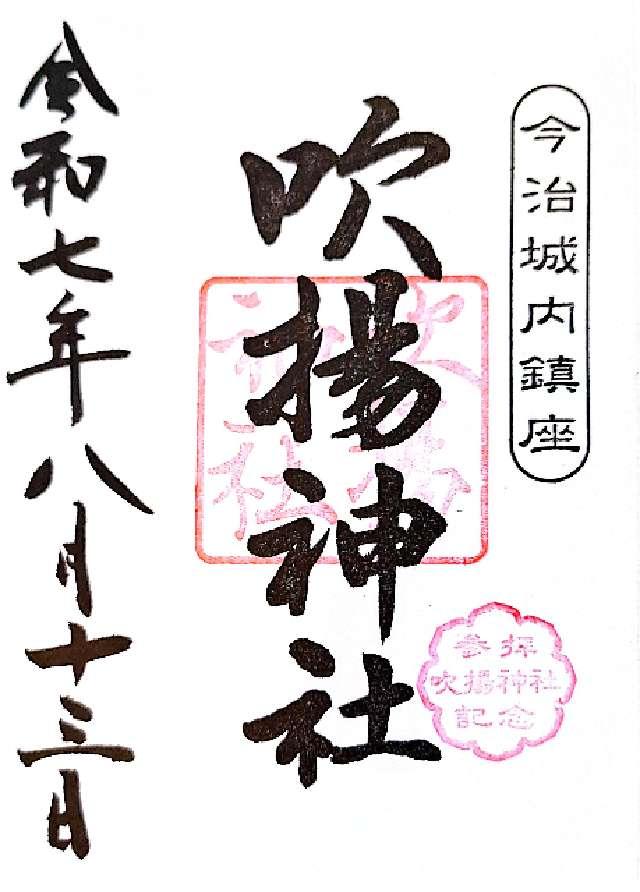 今治城内鎮座
吹揚神社
吹揚
神社
参拝
吹揚神社
記念
令和七年八月十三日